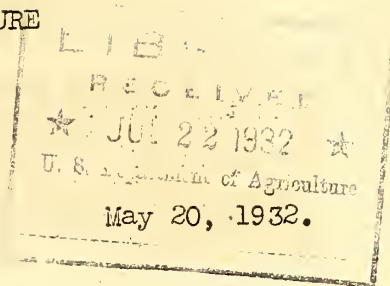 URE
LIB
RECEIVED
★ JUL 22 1932 ★
U. S. Department of Agriculture
May 20, 1932.